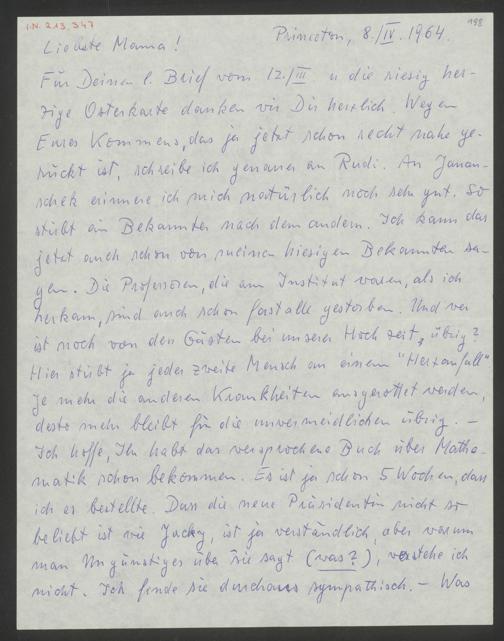 I.N. 213.347
198
Princeton, 8./IV. 1964.
Liebste Mama!
Für Deinen l. Brief vom 12./III u die riesig her-
zige Osterkarte danken wir Dir herzlich. Wegen
Eures Kommens, das ja jetzt schon recht nahe ge-
rückt ist, schreibe ich genauer an Rudi. An Janau-
schek erinnere ich mich natürlich noch sehr gut. So
stirbt ein Bekannter nach dem andern. Ich kann das
jetzt auch schon von meinen hiesigen Bekannten sa-
gen. Die Professoren, die am Institut waren, als ich
herkam, sind auch schon fast alle gestorben. Und wer
ist noch von den Gästen bei unserer Hochzeit übrig?
Hier stirbt ja jeder zweite Mensch an einem "Herzanfall"
Je mehr die anderen Krankheiten ausgerottet werden,
desto mehr bleibt für die unvermeidlichen übrig. –
Ich hoffe, Ihr habt das versprochene Buch über Mathe-
matik schon bekommen. Es ist ja schon 5 Wochen, dass
ich es bestellte. Dass die neue Präsidentin nicht so
beliebt ist wie Jacky, ist ja verständlich, aber warum
man Ungünstiges über sie sagt (was?), verstehe ich
nicht. Ich finde sie durchaus sympathisch. – Was